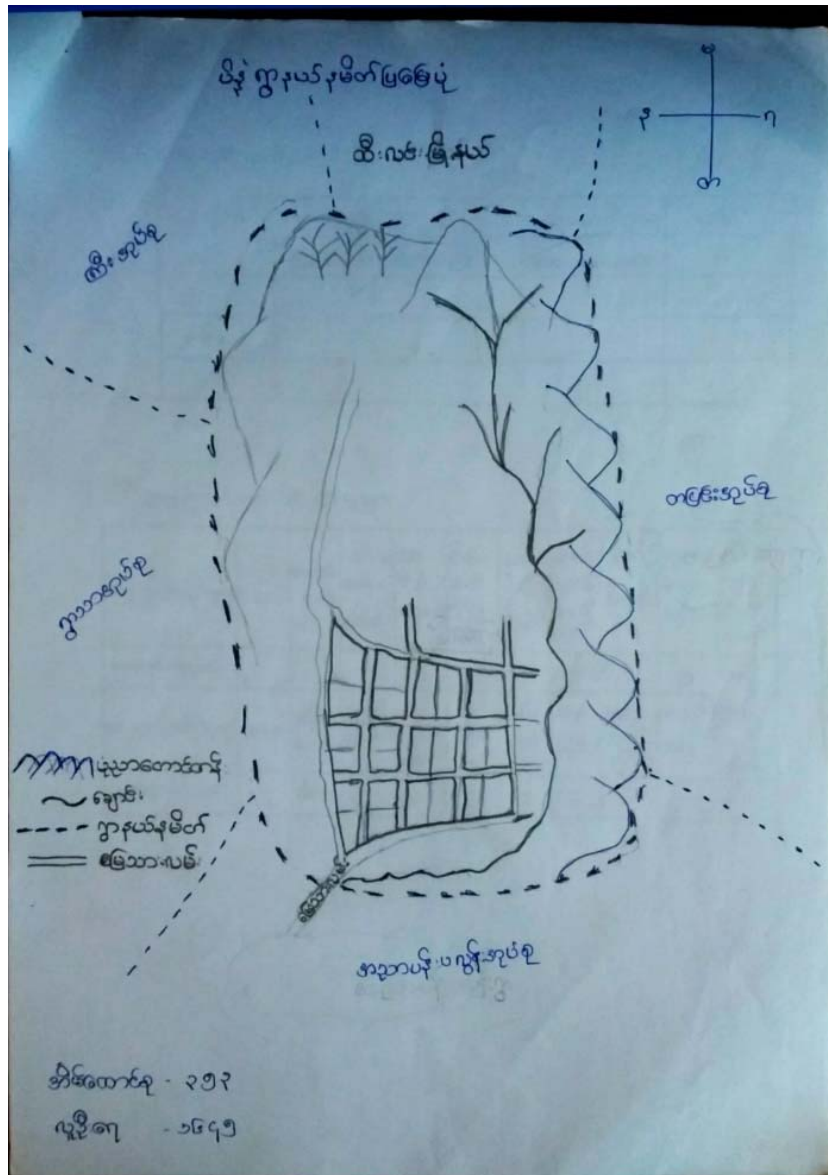 ပိန္နဲရွာနယ်နမိတ်ပြမြေပုံ
မ
ထီးလင်းမြို့နယ်
တ
ကြီးအုပ်စု
တပြင်းအုပ်စု
ရွာသာအုပ်စု
ပုံညာတောင်တန်း
ချောင်း
ရွာနယ်နမိတ်
မြေသားလမ်း
မြေသားလမ်း
အညာပန်းပလွန်းအုပ်စု
အိမ်ထောင်စု - ၃၅၃
လူဦးရေ